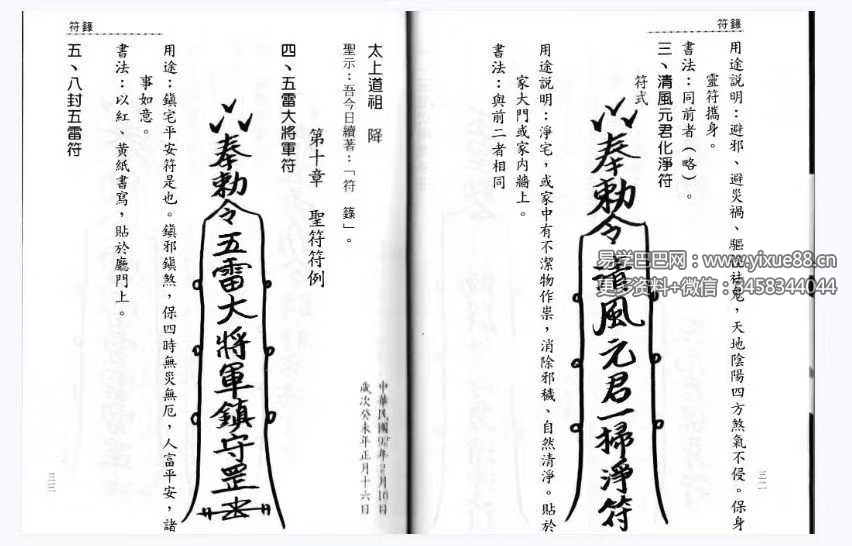 符錄
用途説明：避邪、避災禍、驅陰祛鬼，天地陰陽四方煞氣不侵。保身
靈符攜身。
書法：同前者（略）。
三、清風元君化淨符
符式
奉勅令清風元君一掃淨符
用途説明：淨宅，或家中有不潔物作祟，消除邪穢、自然清淨。貼於
家大門或家内牆上。
書法：與前二者相同
三二
符錄
中華民國92年2月16日
歲次癸未年正月十六日
太上道祖 降
聖示：吾今日續著：「符 錄」。
第十章 聖符符例
四、五雷大將軍符
奉勅令五雷大將軍鎮守罡
用途：鎮宅平安符是也。鎮邪鎮煞，保四時無災無厄，人富平安，諸
事如意。
書法：以紅、黄紙書寫，貼於廳門上。
五、八封五雷符
三三
易学巴巴网：www.yixue88.cn
更多资料+微信：3458344044